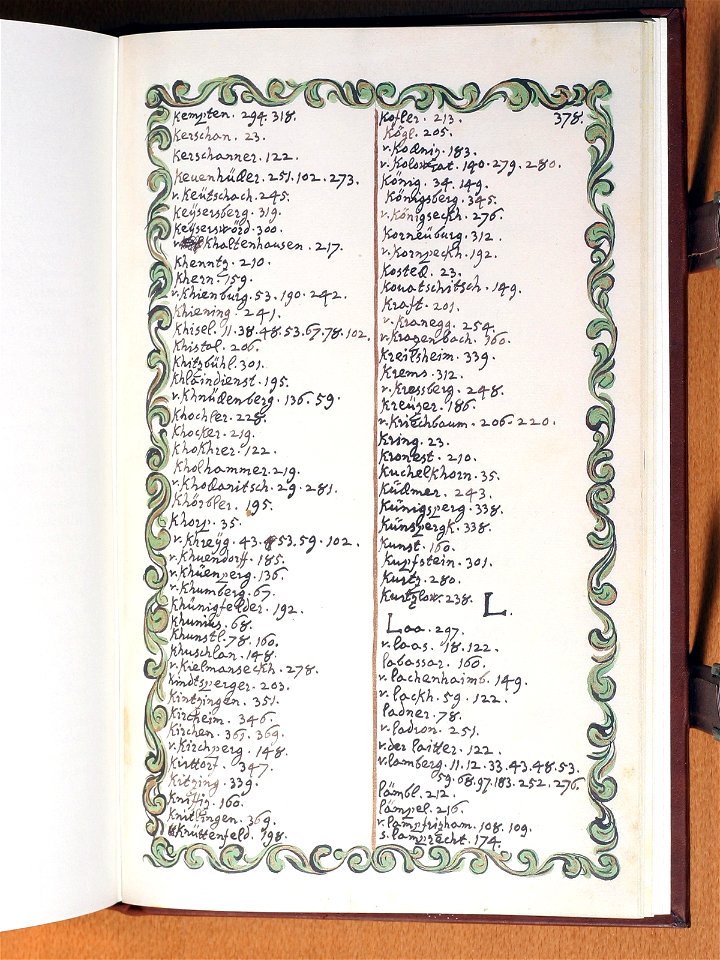 Kempten. 294. 318.
Kerschan. 23.
Kerschanner. 122.
Keuenhüder. 251. 102. 273.
v. Keütschach. 245.
Keÿsersberg. 319.
Keÿserswörd. 300.
v. Khaltenhausen. 217.
Khenntz. 210.
Khern. 159.
v. Khienburg. 53. 190. 242.
Khiening. 241.
Khisel. 11. 38. 48. 53. 67. 78. 102.
Khistal. 206.
Khitzbühl. 301.
Khlaindienst. 195.
v. Khnüdenberg. 136. 59.
Khochler. 228.
Khocker. 219.
Khokhrer. 122.
Kholhammer. 219.
v. Khodanitsch. 29. 281.
Khörbler. 195.
Khorp. 35.
v. Khreÿg. 43. 53. 59. 102.
v. Khuendorff. 185.
v. Khüenperg. 136.
v. Khumberg. 67.
Khünigfelder. 192.
Khunius. 68.
Khunstl. 78. 160.
Khuschlan. 148.
v. Kielmanseckh. 278.
Kindtsperger. 203.
Kintzingen. 351.
Kircheim. 346.
Kirchen. 361. 369.
v. Kirchperg. 148.
Kirttorf. 347.
Kitzing. 339.
Knifitz. 160.
Knitlingen. 369.
Knüttenfeld. 198.
378.
Kofler. 213.
Kögl. 205.
v. Kodnig. 183.
v. Kolowrat. 140. 279. 280.
König. 34. 149.
Königsberg. 345.
v. Königseckh. 276.
Korneüburg. 312.
v. Kornpeckh. 192.
Kosted. 23.
Kouatschitsch. 149.
Kraft. 201.
v. Kranegg. 254.
v. Kragenbach. 160.
Kreilsheim. 339.
Krems. 312.
v. Kressberg. 248.
Kreüzer. 186.
v. Kriechbaum. 206. 220.
Kring. 23.
Kronest. 210.
Kuchelkhorn. 35.
Küdmer. 243.
Künigsperg. 338.
Künspergk. 338.
Kunst. 160.
Kupfstein. 301.
Kurtz. 280.
Kurtzlow. 238.
L.
Laa. 297.
v. laas. 18. 122.
labassar. 160.
v. lachenhaimb. 149.
v. lackh. 59. 122.
ladner. 78.
v. ladron. 251.
v. der laitter. 122.
v. lamberg. 11. 12. 33. 43. 48. 53.
59. 68. 97. 183. 252. 276.
lämbl. 212.
lämpel. 216.
v. lampfrizham. 108. 109.
s. lamprecht. 174.